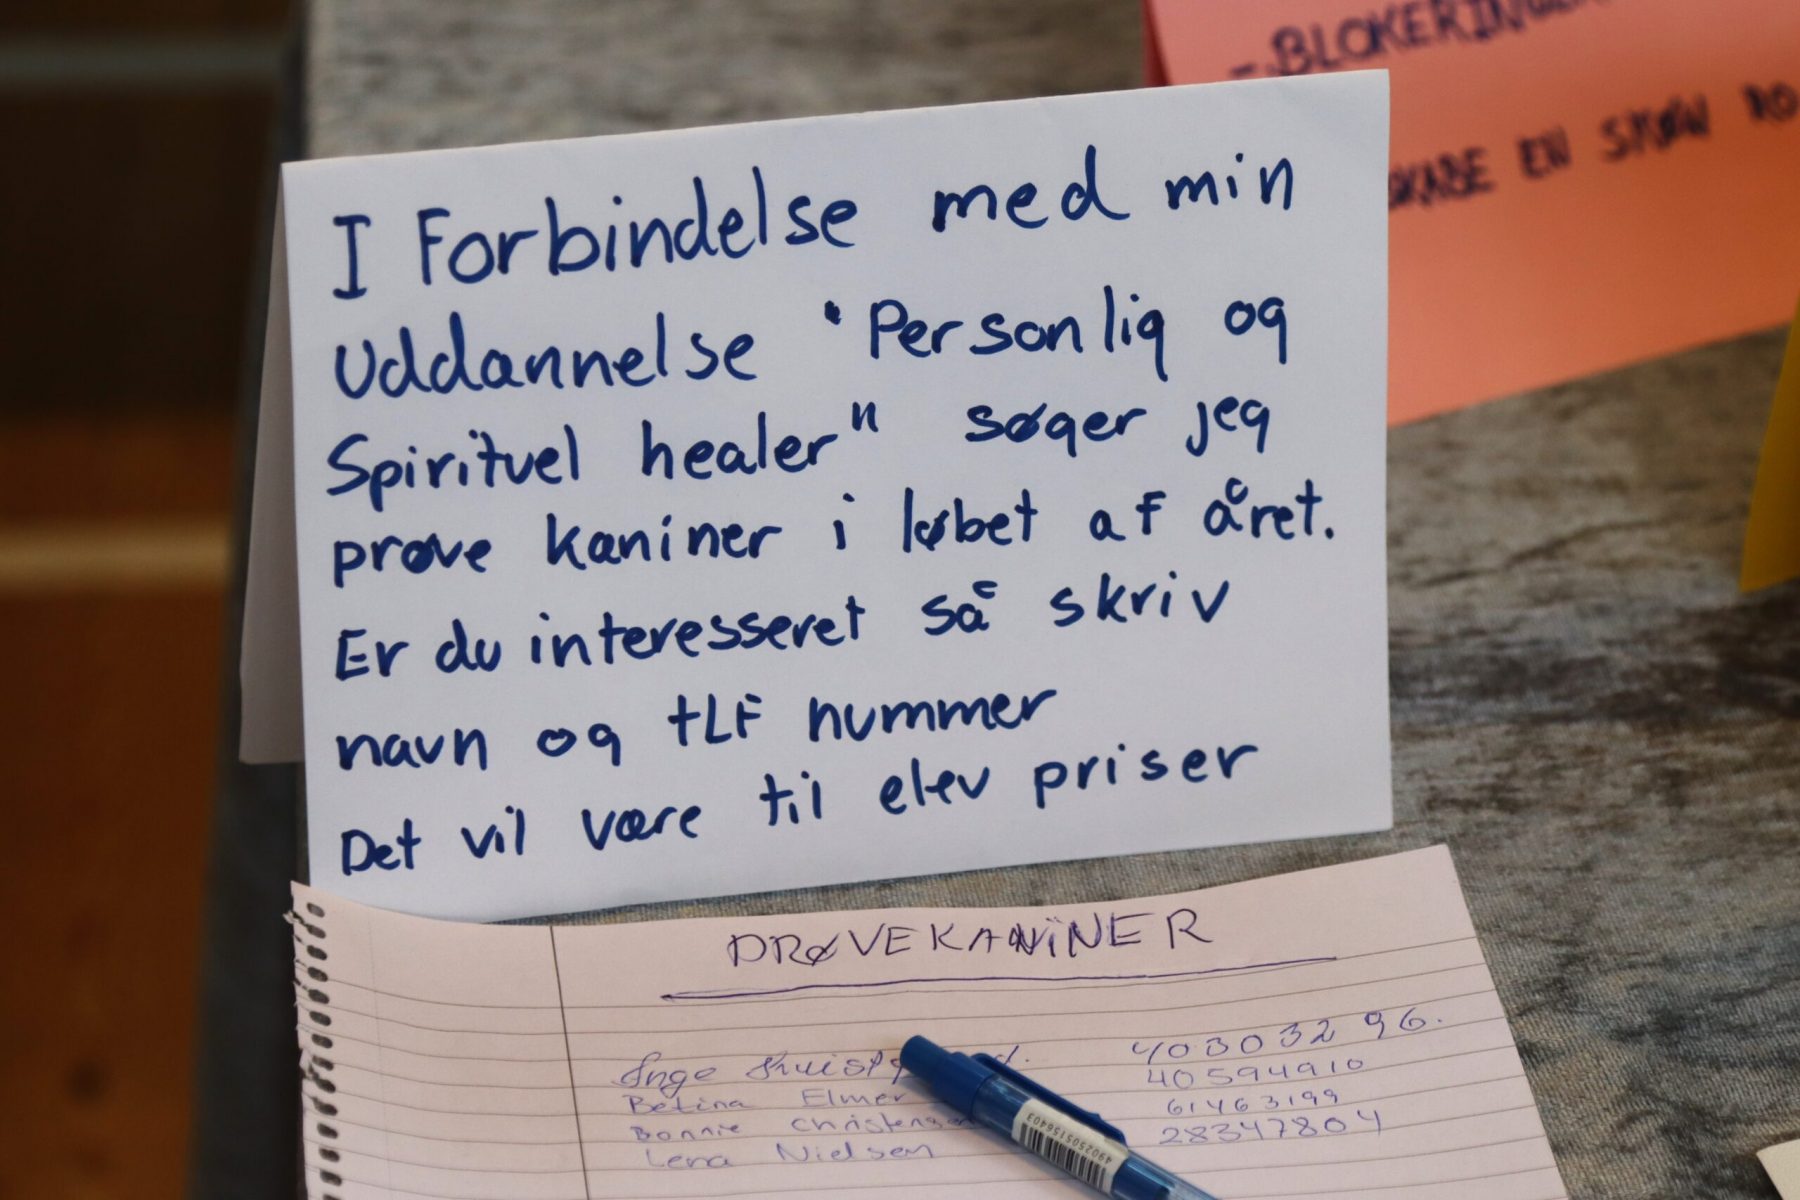 I Forbindelse med min
Uddannelse "Personlig og
Spirituel healer" søger jeg
prøve kaniner i løbet af året.
Er du interesseret så skriv
navn og tLF nummer
Det vil være til elev priser
- BLOKERINGER
SKABE EN SKØN RO
PRØVEKANINER
Inge 40303296.
Betina Elmer 40594910
Bonnie Christensen 61463199
Lena Nielsen 28347804
4902505156403